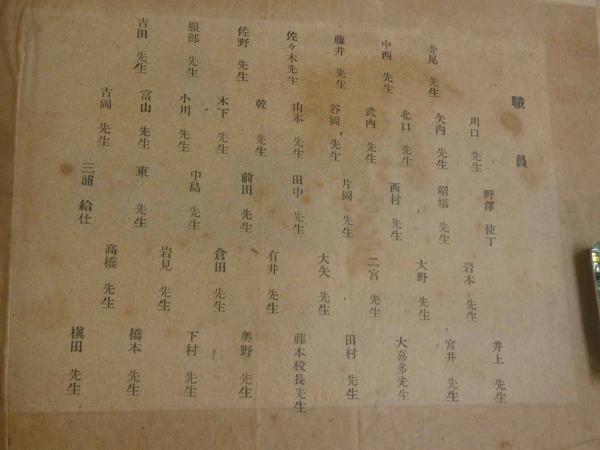 職員
寺尾 先生
中西 先生
藤井 先生
佐々木先生
佐野 先生
服部 先生
吉田 先生
川口 先生
矢内 先生
北口 先生
武内 先生
谷岡 先生
山本 先生
乾 先生
木下 先生
小川 先生
富山 先生
吉岡 先生
野澤 使丁
稻塩 先生
西村 先生
片岡 先生
田中 先生
前田 先生
中島 先生
東 先生
三浦 給仕
岩本 先生
大野 先生
二宮 先生
大矢 先生
有井 先生
倉田 先生
岩見 先生
高橋 先生
井上 先生
宮井 先生
大喜多先生
田村 先生
藤本校長先生
奥野 先生
下村 先生
橋本 先生
槇田 先生